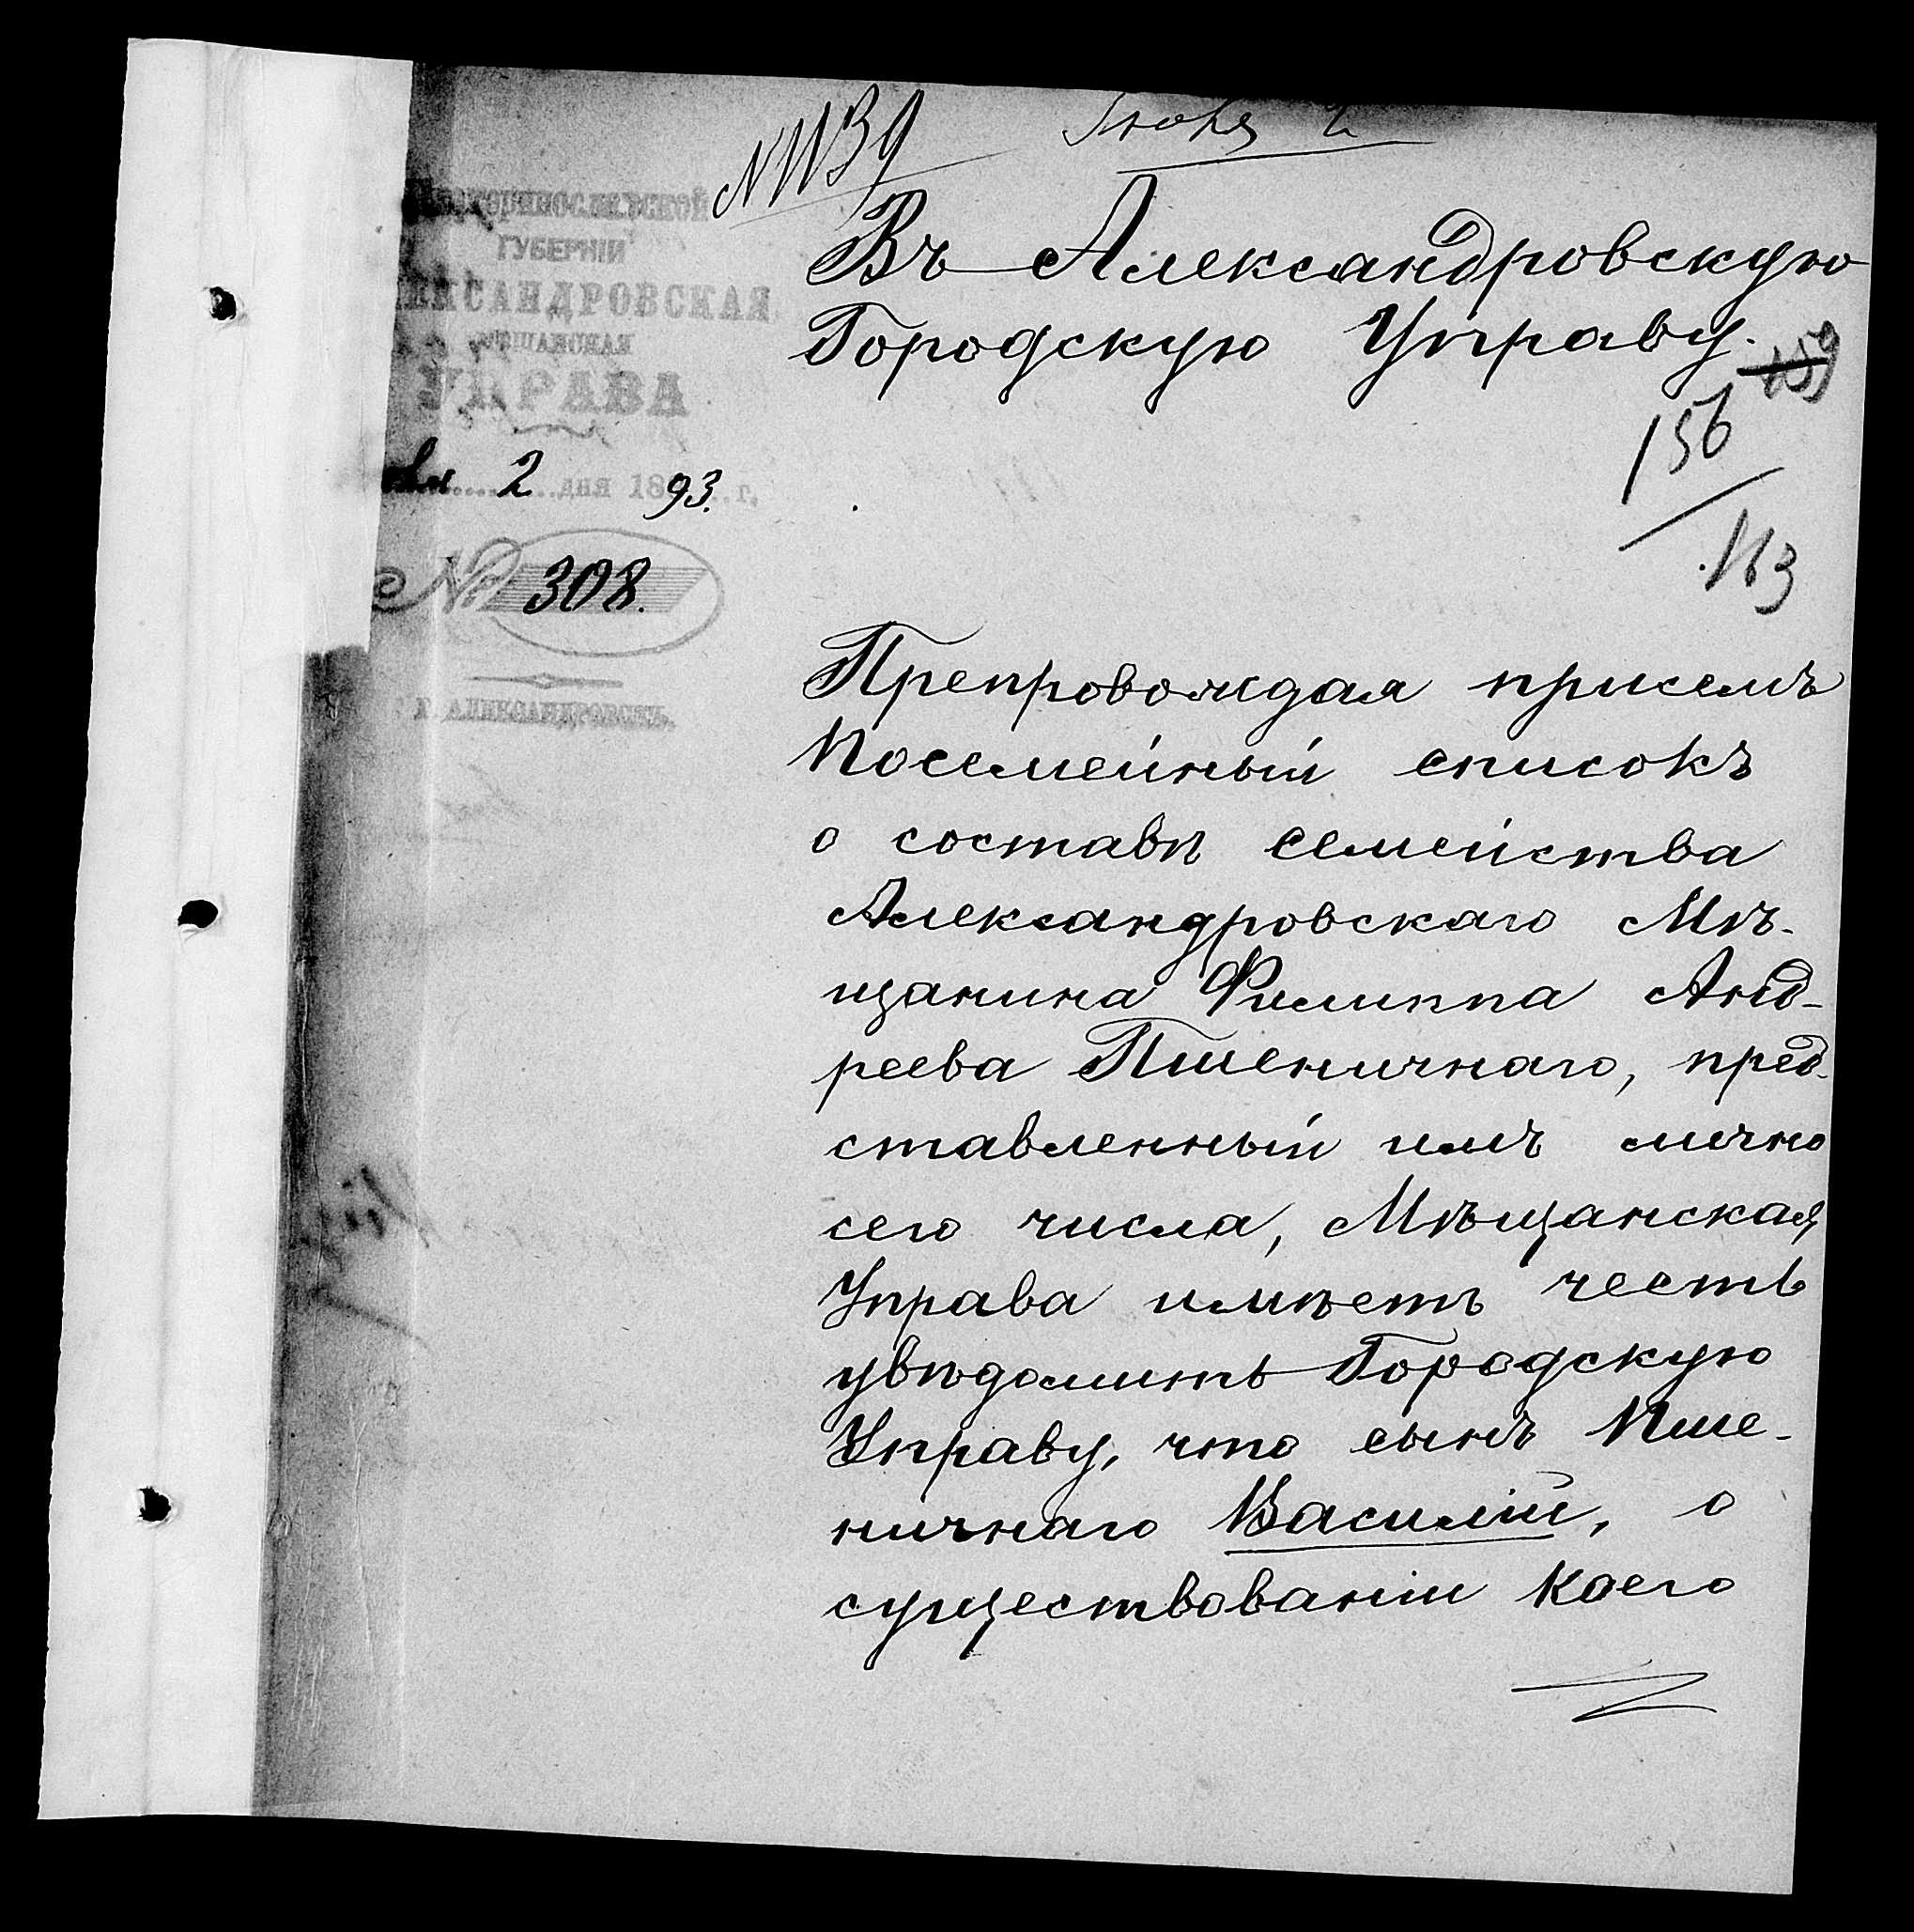 N 1139 Июня 2
Екатеринославской
ГУБЕРНІИ
АЛЕКСАНДРОВСКАЯ
МѢЩАНСКАЯ
УПРАВА
2 дня 1893. г.
№ 308.
Г. АЛЕКСАНДРОВСКЪ.
Въ Александровскую
Городскую Управу.
159
156
163
Препровождая присемъ
Посемейный списокъ
о составѣ семейства
Александровскаго Мѣ-
щанина Филиппа Анд-
реева Пшеничнаго, пред-
ставленный имъ лично
сего числа, Мѣщанская
Управа имѣетъ честь
увѣдомить Городскую
Управу, что сынъ Пше-
ничнаго Василій, о
существованіи коего